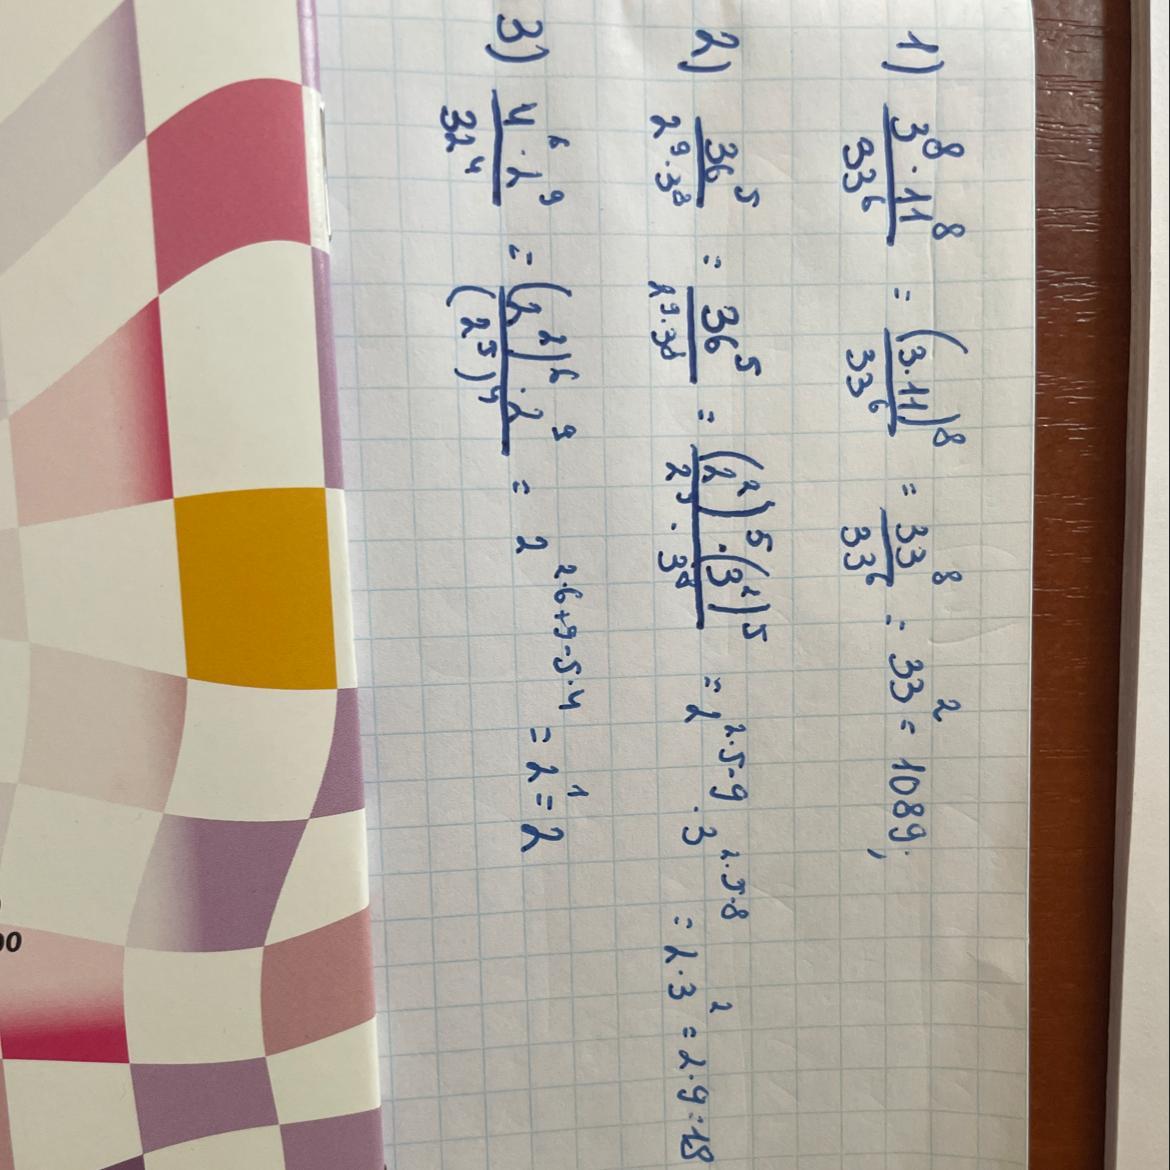 1) 3⁸·11⁸/33⁶ = (3·11)⁸/33⁶ = 33⁸/33⁶ = 33² = 1089;
2) 36⁵/2⁹·3⁸ = 36⁵/2⁹·3⁸ = (2²)⁵·(3²)⁵/2⁹·3⁸ = 2²·⁵⁻⁹·3²·⁵⁻⁸ = 2·3² = 2·9=18
3) 4⁶·2⁹/32⁴ = (2²)⁶·2⁹/(2⁵)⁴ = 2²·⁶⁺⁹⁻⁵·⁴ = 2¹=2